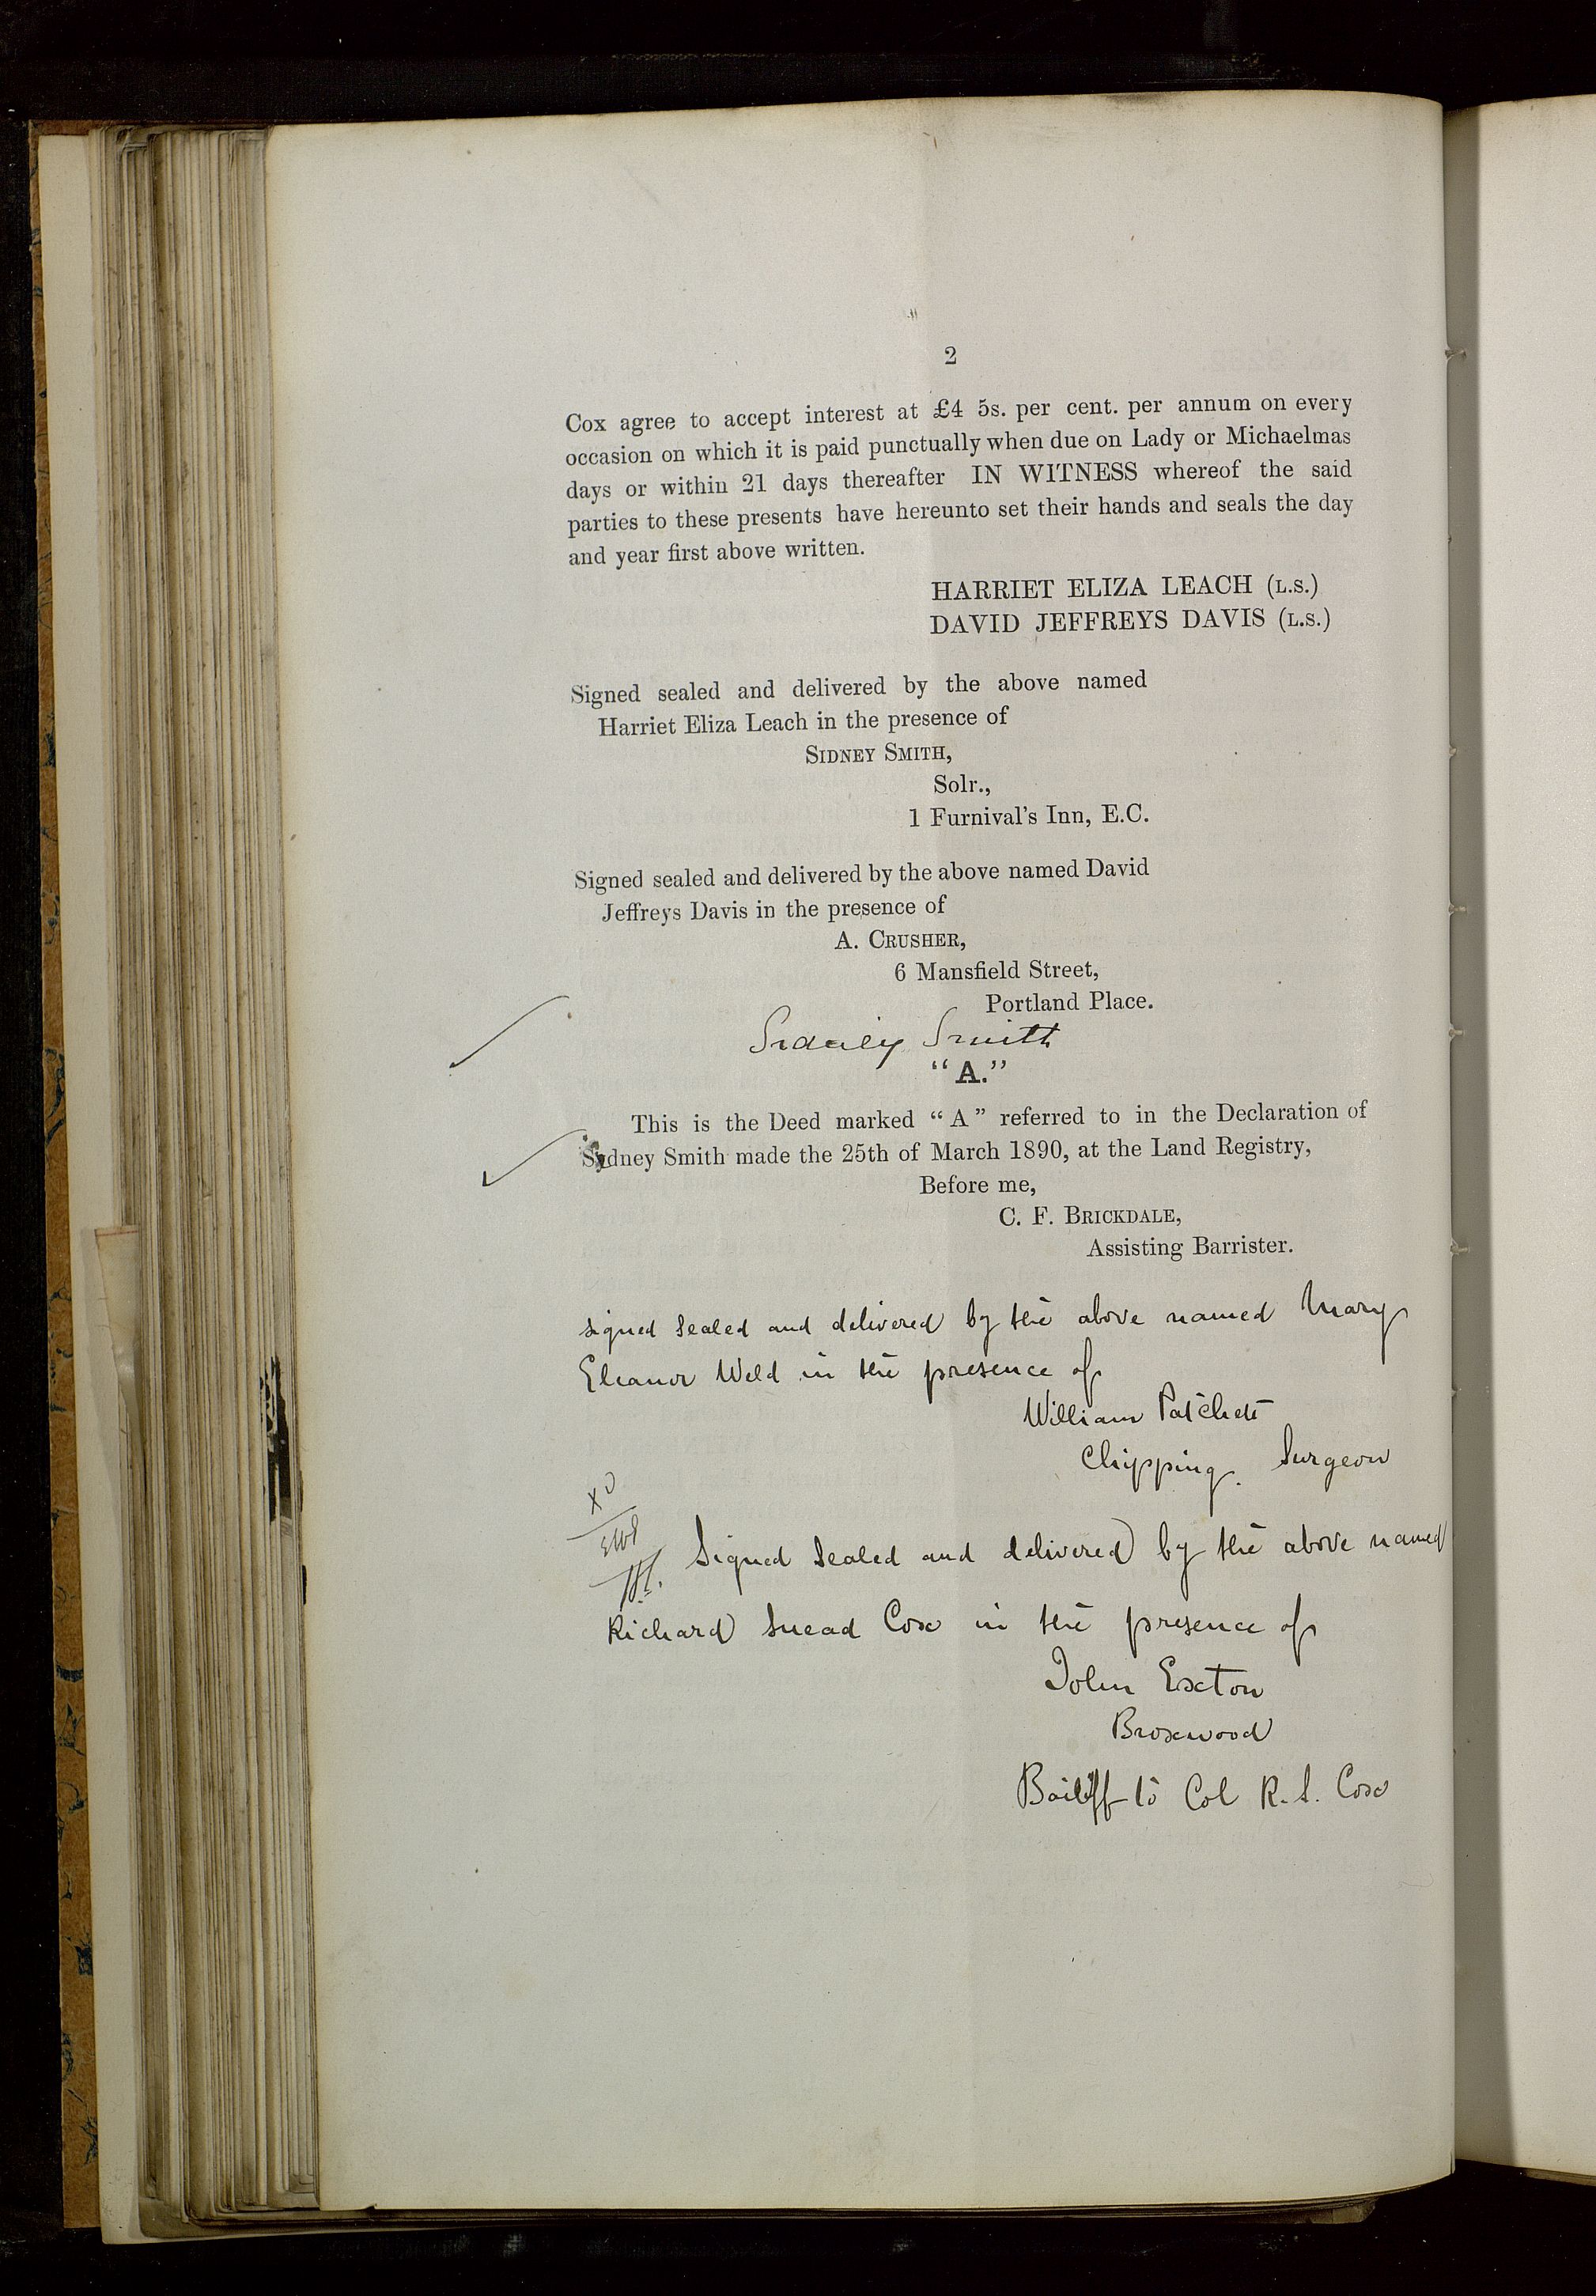 2
Cox agree to accept interest at £4 5s. per cent. per annum on every
occasion on which it is paid punctually when due on Lady or Michaelmas
days or within 21 days thereafter IN WITNESS whereof the said
parties to these presents have hereunto set their hands and seals the day
and year first above written.
HARRIET ELIZA LEACH (L.S.)
DAVID JEFFREYS DAVIS (L.S.)
Signed sealed and delivered by the above named
Harriet Eliza Leach in the presence of
SIDNEY SMITH,
Solr.,
1 Furnival's Inn, E.C.
Signed sealed and delivered by the above named David
Jeffreys Davis in the presence of
A. CRUSHER,
6 Mansfield Street,
Portland Place.
Sidney Smith
"A."
This is the Deed marked "A" referred to in the Declaration of
Sydney Smith made the 25th of March 1890, at the Land Registry,
Before me,
C. F. BRICKDALE,
Assisting Barrister.
signed sealed and delivered by the above named Mary
Eleanor Weld in the presence of
William Patchett
Chipping. Surgeon
Signed sealed and delivered by the above named
Richard Snead Cox in the presence of
John Exton
Broxwood
Bailiff to Col R. S. Cox